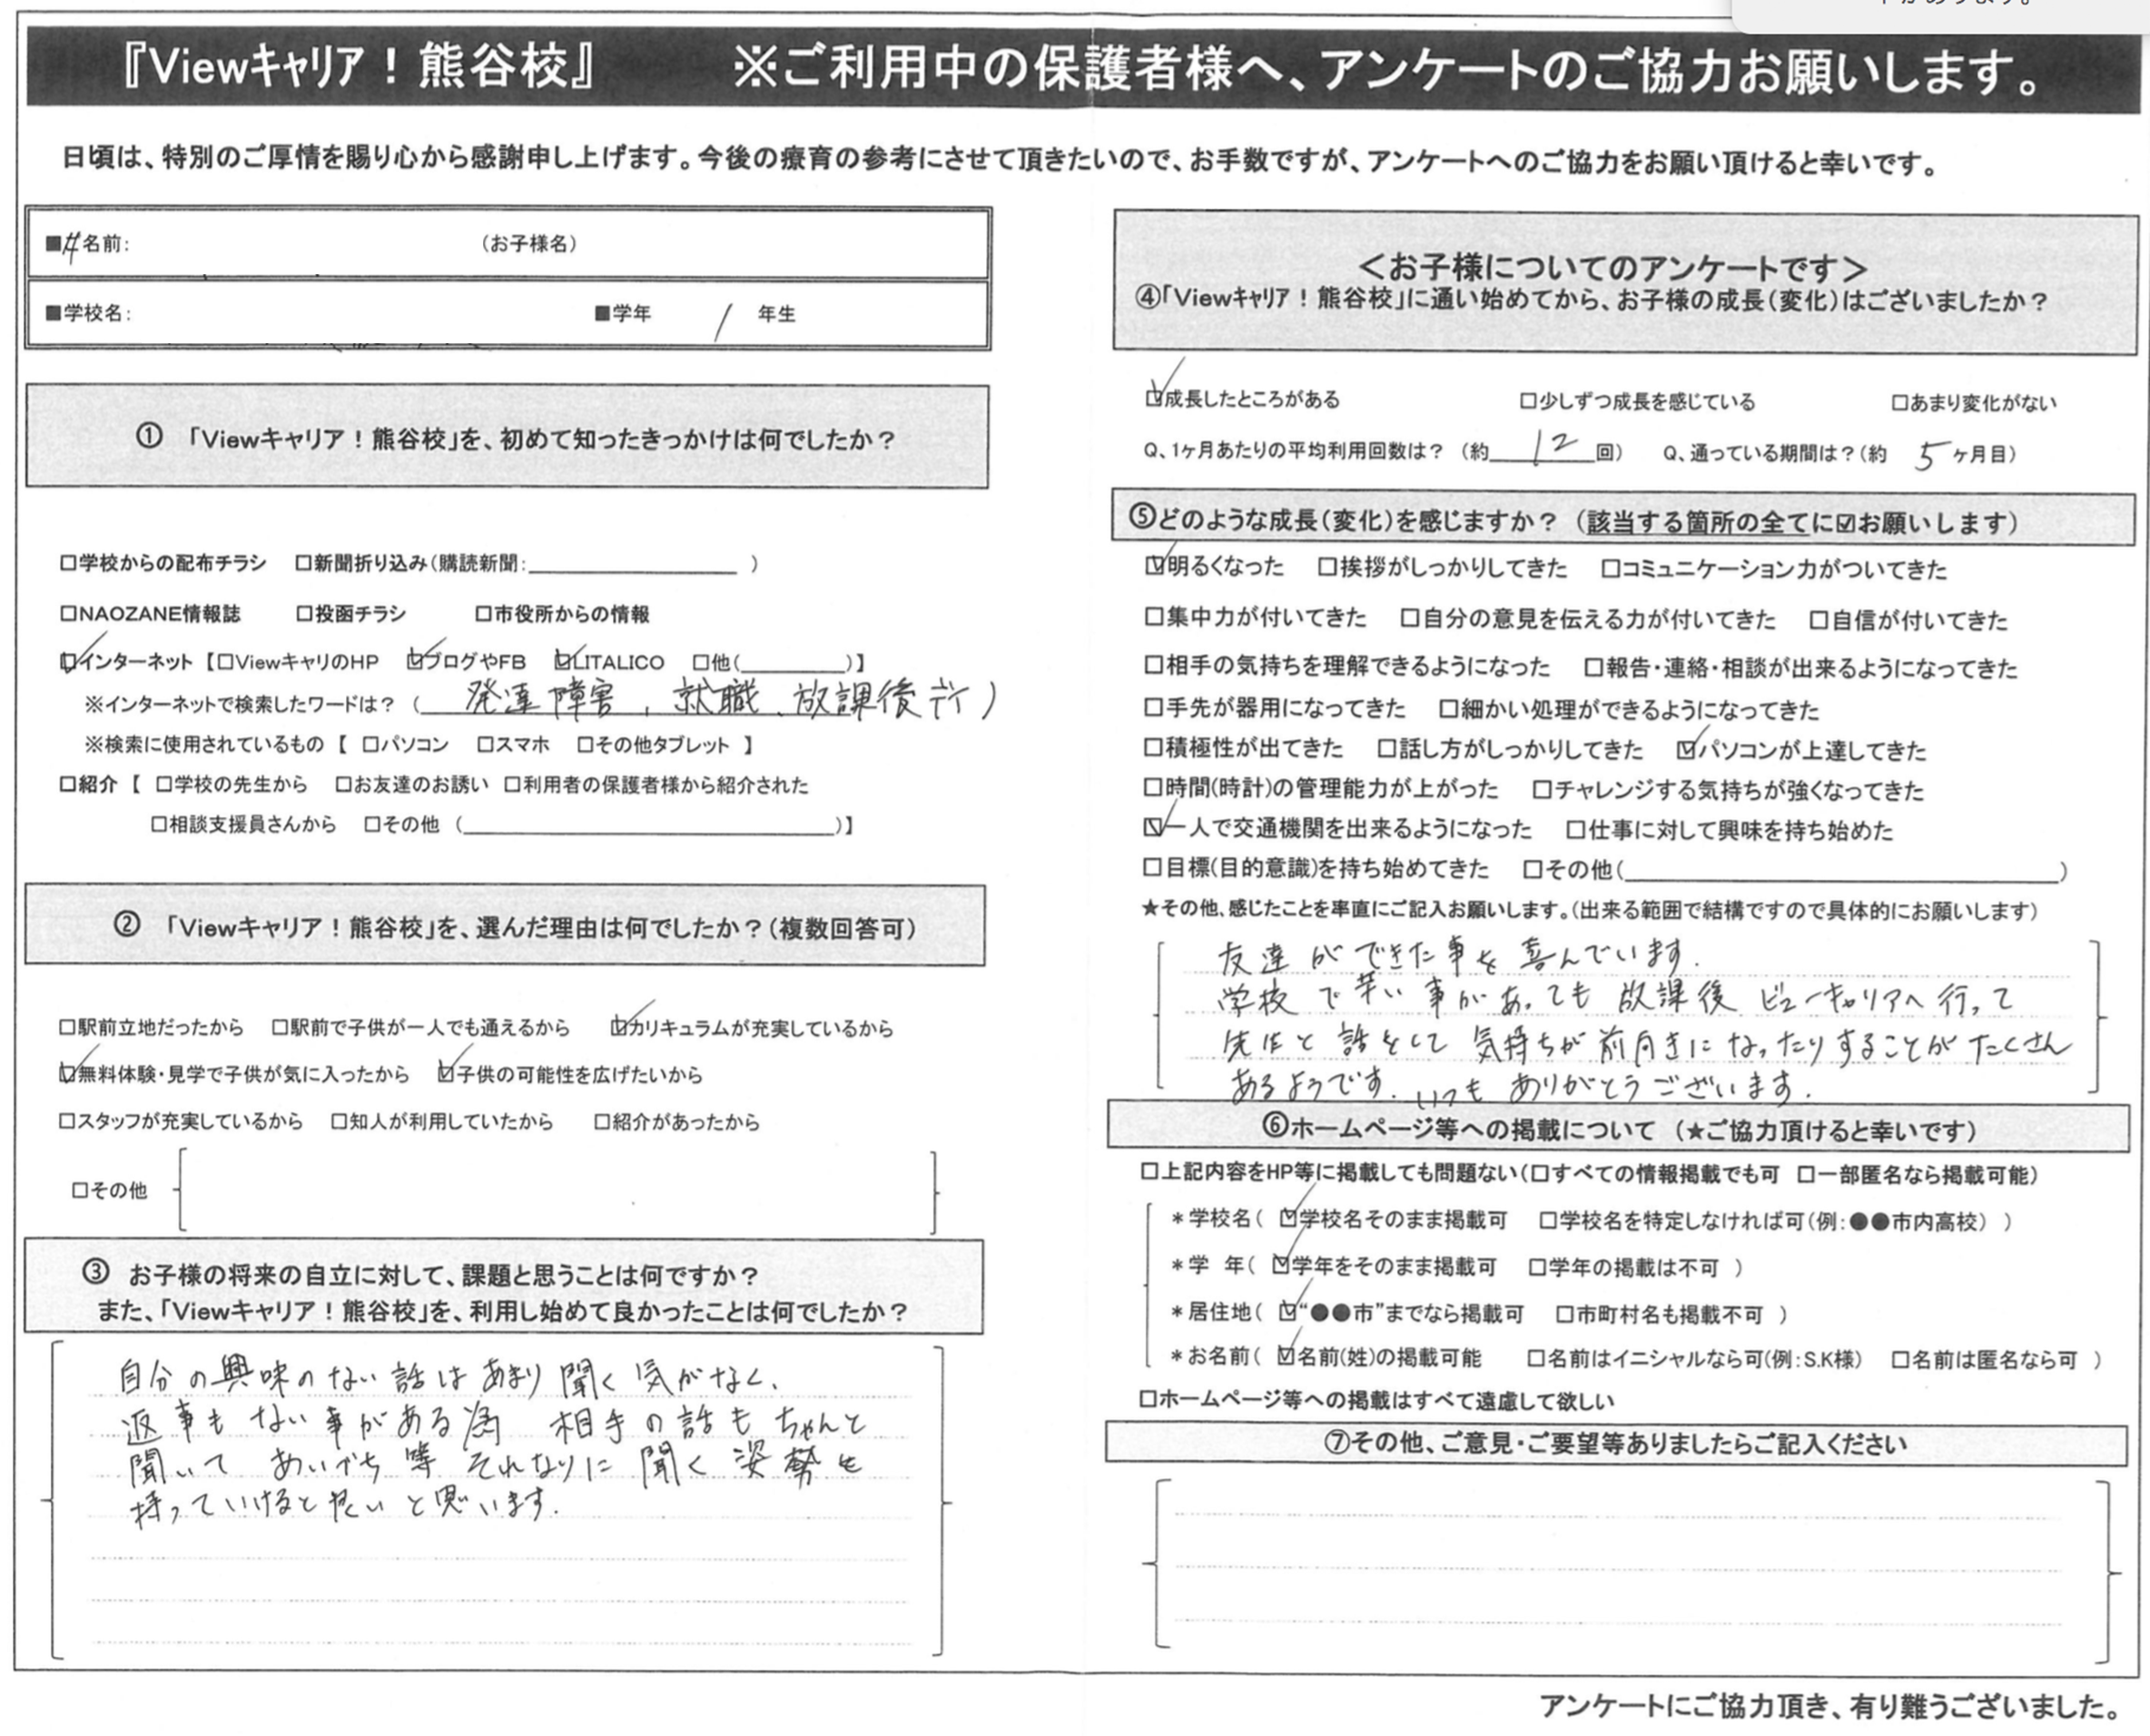 『Viewキャリア！熊谷校』 ※ご利用中の保護者様へ、アンケートのご協力お願いします。
日頃は、特別のご厚情を賜り心から感謝申し上げます。今後の療育の参考にさせて頂きたいので、お手数ですが、アンケートへのご協力をお願い頂けると幸いです。
■名前: (お子様名)
■学校名: ■学年 1 年生
① 「Viewキャリア！熊谷校」を、初めて知ったきっかけは何でしたか？
□学校からの配布チラシ □新聞折り込み(購読新聞: )
□NAOZANE情報誌 □投函チラシ □市役所からの情報
☑インターネット【□ViewキャリのHP ☑ブログやFB ☑LITALICO □他( )】
※インターネットで検索したワードは？（ 発達障害、就職、放課後デイ）
※検索に使用されているもの【 □パソコン □スマホ □その他タブレット 】
□紹介【 □学校の先生から □お友達のお誘い □利用者の保護者様から紹介された
□相談支援員さんから □その他（ ）】
② 「Viewキャリア！熊谷校」を、選んだ理由は何でしたか？(複数回答可)
□駅前立地だったから □駅前で子供が一人でも通えるから ☑カリキュラムが充実しているから
☑無料体験・見学で子供が気に入ったから ☑子供の可能性を広げたいから
□スタッフが充実しているから □知人が利用していたから □紹介があったから
□その他
③ お子様の将来の自立に対して、課題と思うことは何ですか？
また、「Viewキャリア！熊谷校」を、利用し始めて良かったことは何でしたか？
自分の興味のない話はあまり聞く気がなく、
返事もない事がある為 相手の話もちゃんと
聞いて あいづち等 それなりに聞く姿勢を
持っていけると良いと思います.
＜お子様についてのアンケートです＞
④「Viewキャリア！熊谷校」に通い始めてから、お子様の成長(変化)はございましたか？
☑成長したところがある □少しずつ成長を感じている □あまり変化がない
Q、1ヶ月あたりの平均利用回数は？（約 12 回） Q、通っている期間は？(約 5 ヶ月目)
⑤どのような成長(変化)を感じますか？（該当する箇所の全てに☑お願いします）
☑明るくなった □挨拶がしっかりしてきた □コミュニケーション力がついてきた
□集中力が付いてきた □自分の意見を伝える力が付いてきた □自信が付いてきた
□相手の気持ちを理解できるようになった □報告・連絡・相談が出来るようになってきた
□手先が器用になってきた □細かい処理ができるようになってきた
□積極性が出てきた □話し方がしっかりしてきた ☑パソコンが上達してきた
□時間(時計)の管理能力が上がった □チャレンジする気持ちが強くなってきた
☑一人で交通機関を出来るようになった □仕事に対して興味を持ち始めた
□目標(目的意識)を持ち始めてきた □その他( )
★その他、感じたことを率直にご記入お願いします。(出来る範囲で結構ですので具体的にお願いします)
友達ができた事を喜んでいます.
学校で辛い事があっても放課後ビューキャリアへ行って
先生と話をして気持ちが前向きになったりすることがたくさん
あるようです. いつもありがとうございます.
⑥ホームページ等への掲載について（★ご協力頂けると幸いです）
□上記内容をHP等に掲載しても問題ない(□すべての情報掲載でも可 □一部匿名なら掲載可能)
＊学校名( ☑学校名そのまま掲載可 □学校名を特定しなければ可(例:●●市内高校) )
＊学 年( ☑学年をそのまま掲載可 □学年の掲載は不可 )
＊居住地( ☑“●●市”までなら掲載可 □市町村名も掲載不可 )
＊お名前( ☑名前(姓)の掲載可能 □名前はイニシャルなら可(例:S.K様) □名前は匿名なら可 )
□ホームページ等への掲載はすべて遠慮して欲しい
⑦その他、ご意見・ご要望等ありましたらご記入ください
アンケートにご協力頂き、有り難うございました。